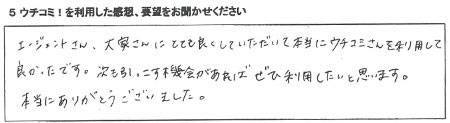 5 ウチコミ！を利用した感想、要望をお聞かせください
エージェントさん、大家さんにとても良くしていただいて本当にウチコミさんを利用して
良かったです。次も引っこす機会があればぜひ利用したいと思います。
本当にありがとうございました。